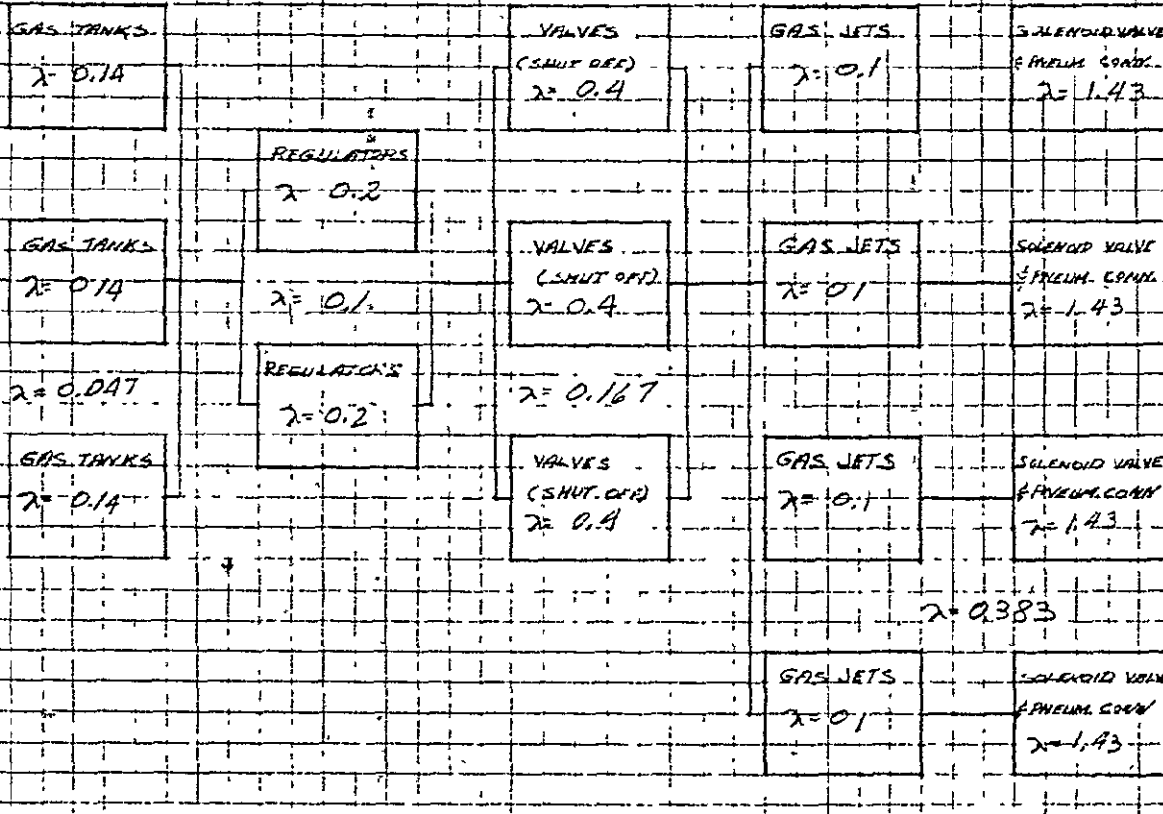 GAS TANKS
λ= 0.14
GAS TANKS
λ= 0.14
λ= 0.047
GAS TANKS
λ= 0.14
REGULATORS
λ= 0.2
λ= 0.1
REGULATORS
λ= 0.2
VALVES
(SHUT OFF)
λ= 0.4
VALVES
(SHUT OFF)
λ= 0.4
λ= 0.167
VALVES
(SHUT OFF)
λ= 0.4
GAS JETS
λ= 0.1
GAS JETS
λ= 0.1
GAS JETS
λ= 0.1
GAS JETS
λ= 0.1
SOLENOID VALVE
& PNEUM. CONN.
λ= 1.43
SOLENOID VALVE
& PNEUM. CONN.
λ= 1.43
SOLENOID VALVE
& PNEUM. CONN
λ= 1.43
λ= 0.383
SOLENOID VALV
& PNEUM. CONN
λ= 1.43